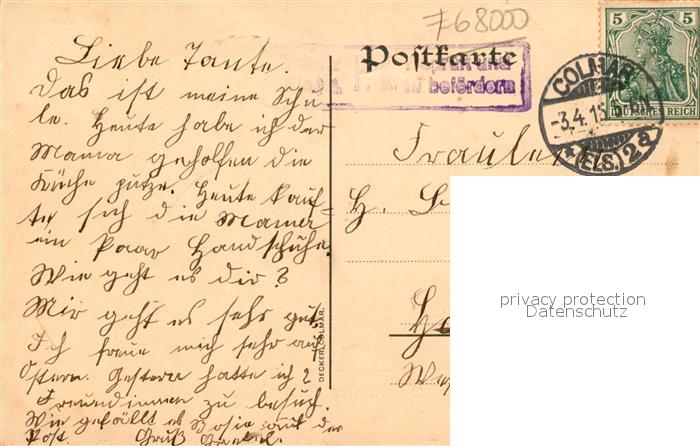 768000
Postkarte
befördern
5 5
DEUTSCHES REICH
COLMAR
-3.4.15
(ELS.) 2a
Liebe Tante.
Das ist meine Schu-
le. Heute habe ich der
Mama geholfen die
Küche putze. Heute kauf-
te sich die Mama
ein Paar Handschuhe.
Wie geht es dir?
Mir geht es sehr gut.
Ich freue mich sehr auf
Ostern. Gestern hatte ich 2
Freundinnen zu besuch.
Wie gefällt es Rosie auf der
Post. Gruß
Fräulei
H.
DECKER, COLMAR.
privacy protection
Datenschutz